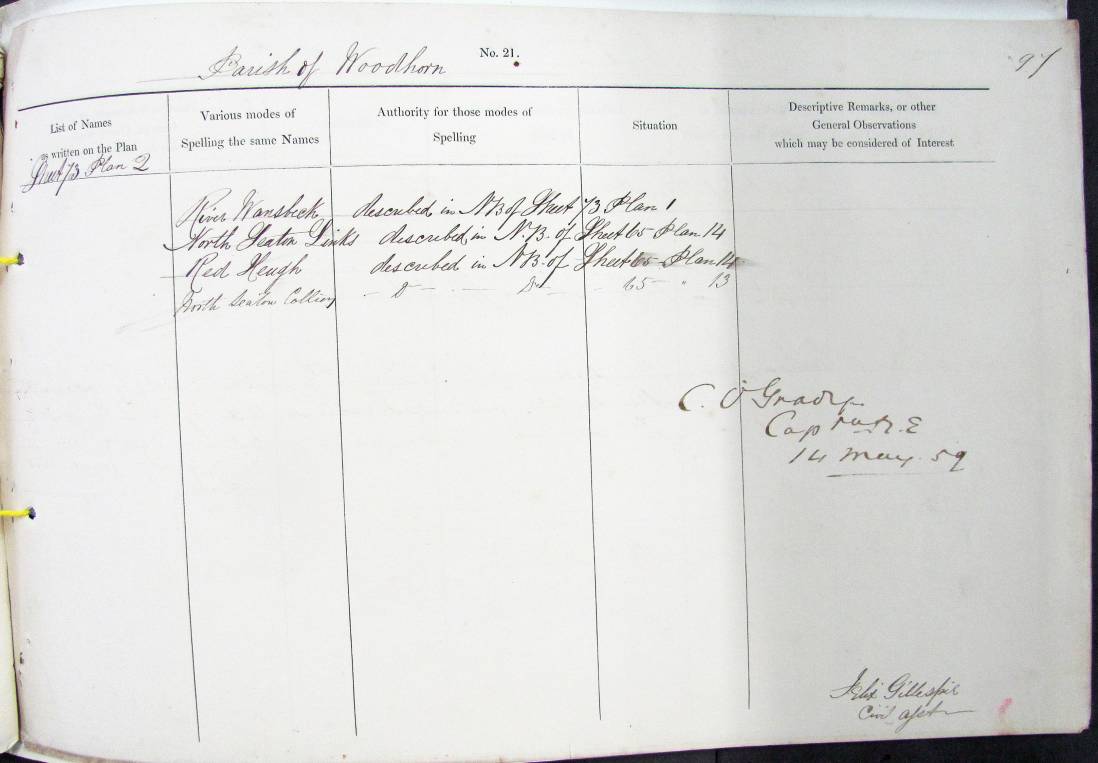 No. 21.
97
Parish of Woodhorn
List of Names
as written on the Plan
Various modes of
Spelling the same Names
Authority for those modes of
Spelling
Situation
Descriptive Remarks, or other
General Observations
which may be considered of Interest
Sheet 73 Plan 2
River Wansbeck described in N B of Sheet 73 Plan 1
North Seaton Links described in N.B. of Sheet 65 Plan 14
Red Heugh described in N B. of Sheet 65 Plan 14
North Seaton Colliery - Do - - Do - - 65 " 13
C. O'Grady
Capt R.E
14 May. 59
Felix Gillespie
Civil Asst